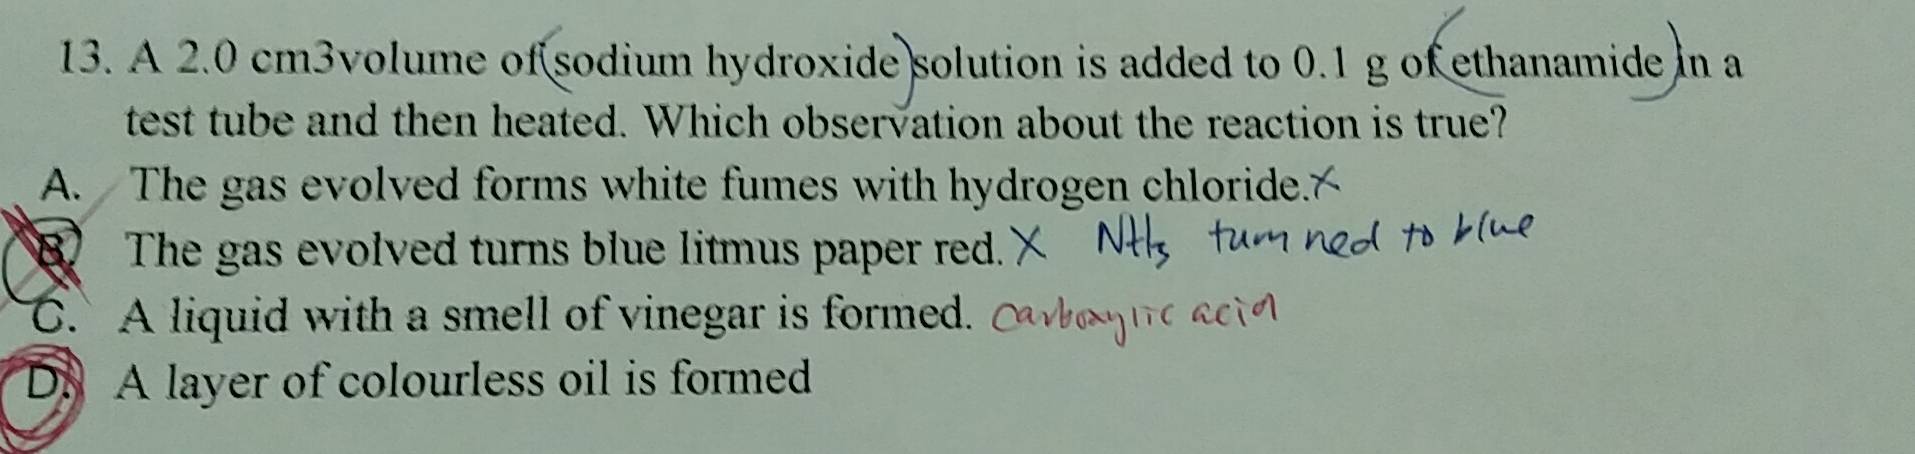 13. A 2.0 cm3volume of (sodium hydroxide) solution is added to 0.1 g of (ethanamide) in a
test tube and then heated. Which observation about the reaction is true?
A. The gas evolved forms white fumes with hydrogen chloride. X
B. The gas evolved turns blue litmus paper red. X NH3 turn red to blue
C. A liquid with a smell of vinegar is formed. carboxylic acid
D. A layer of colourless oil is formed